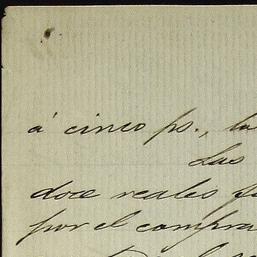 á cinco ps., la
Las
doce reales
por el compra